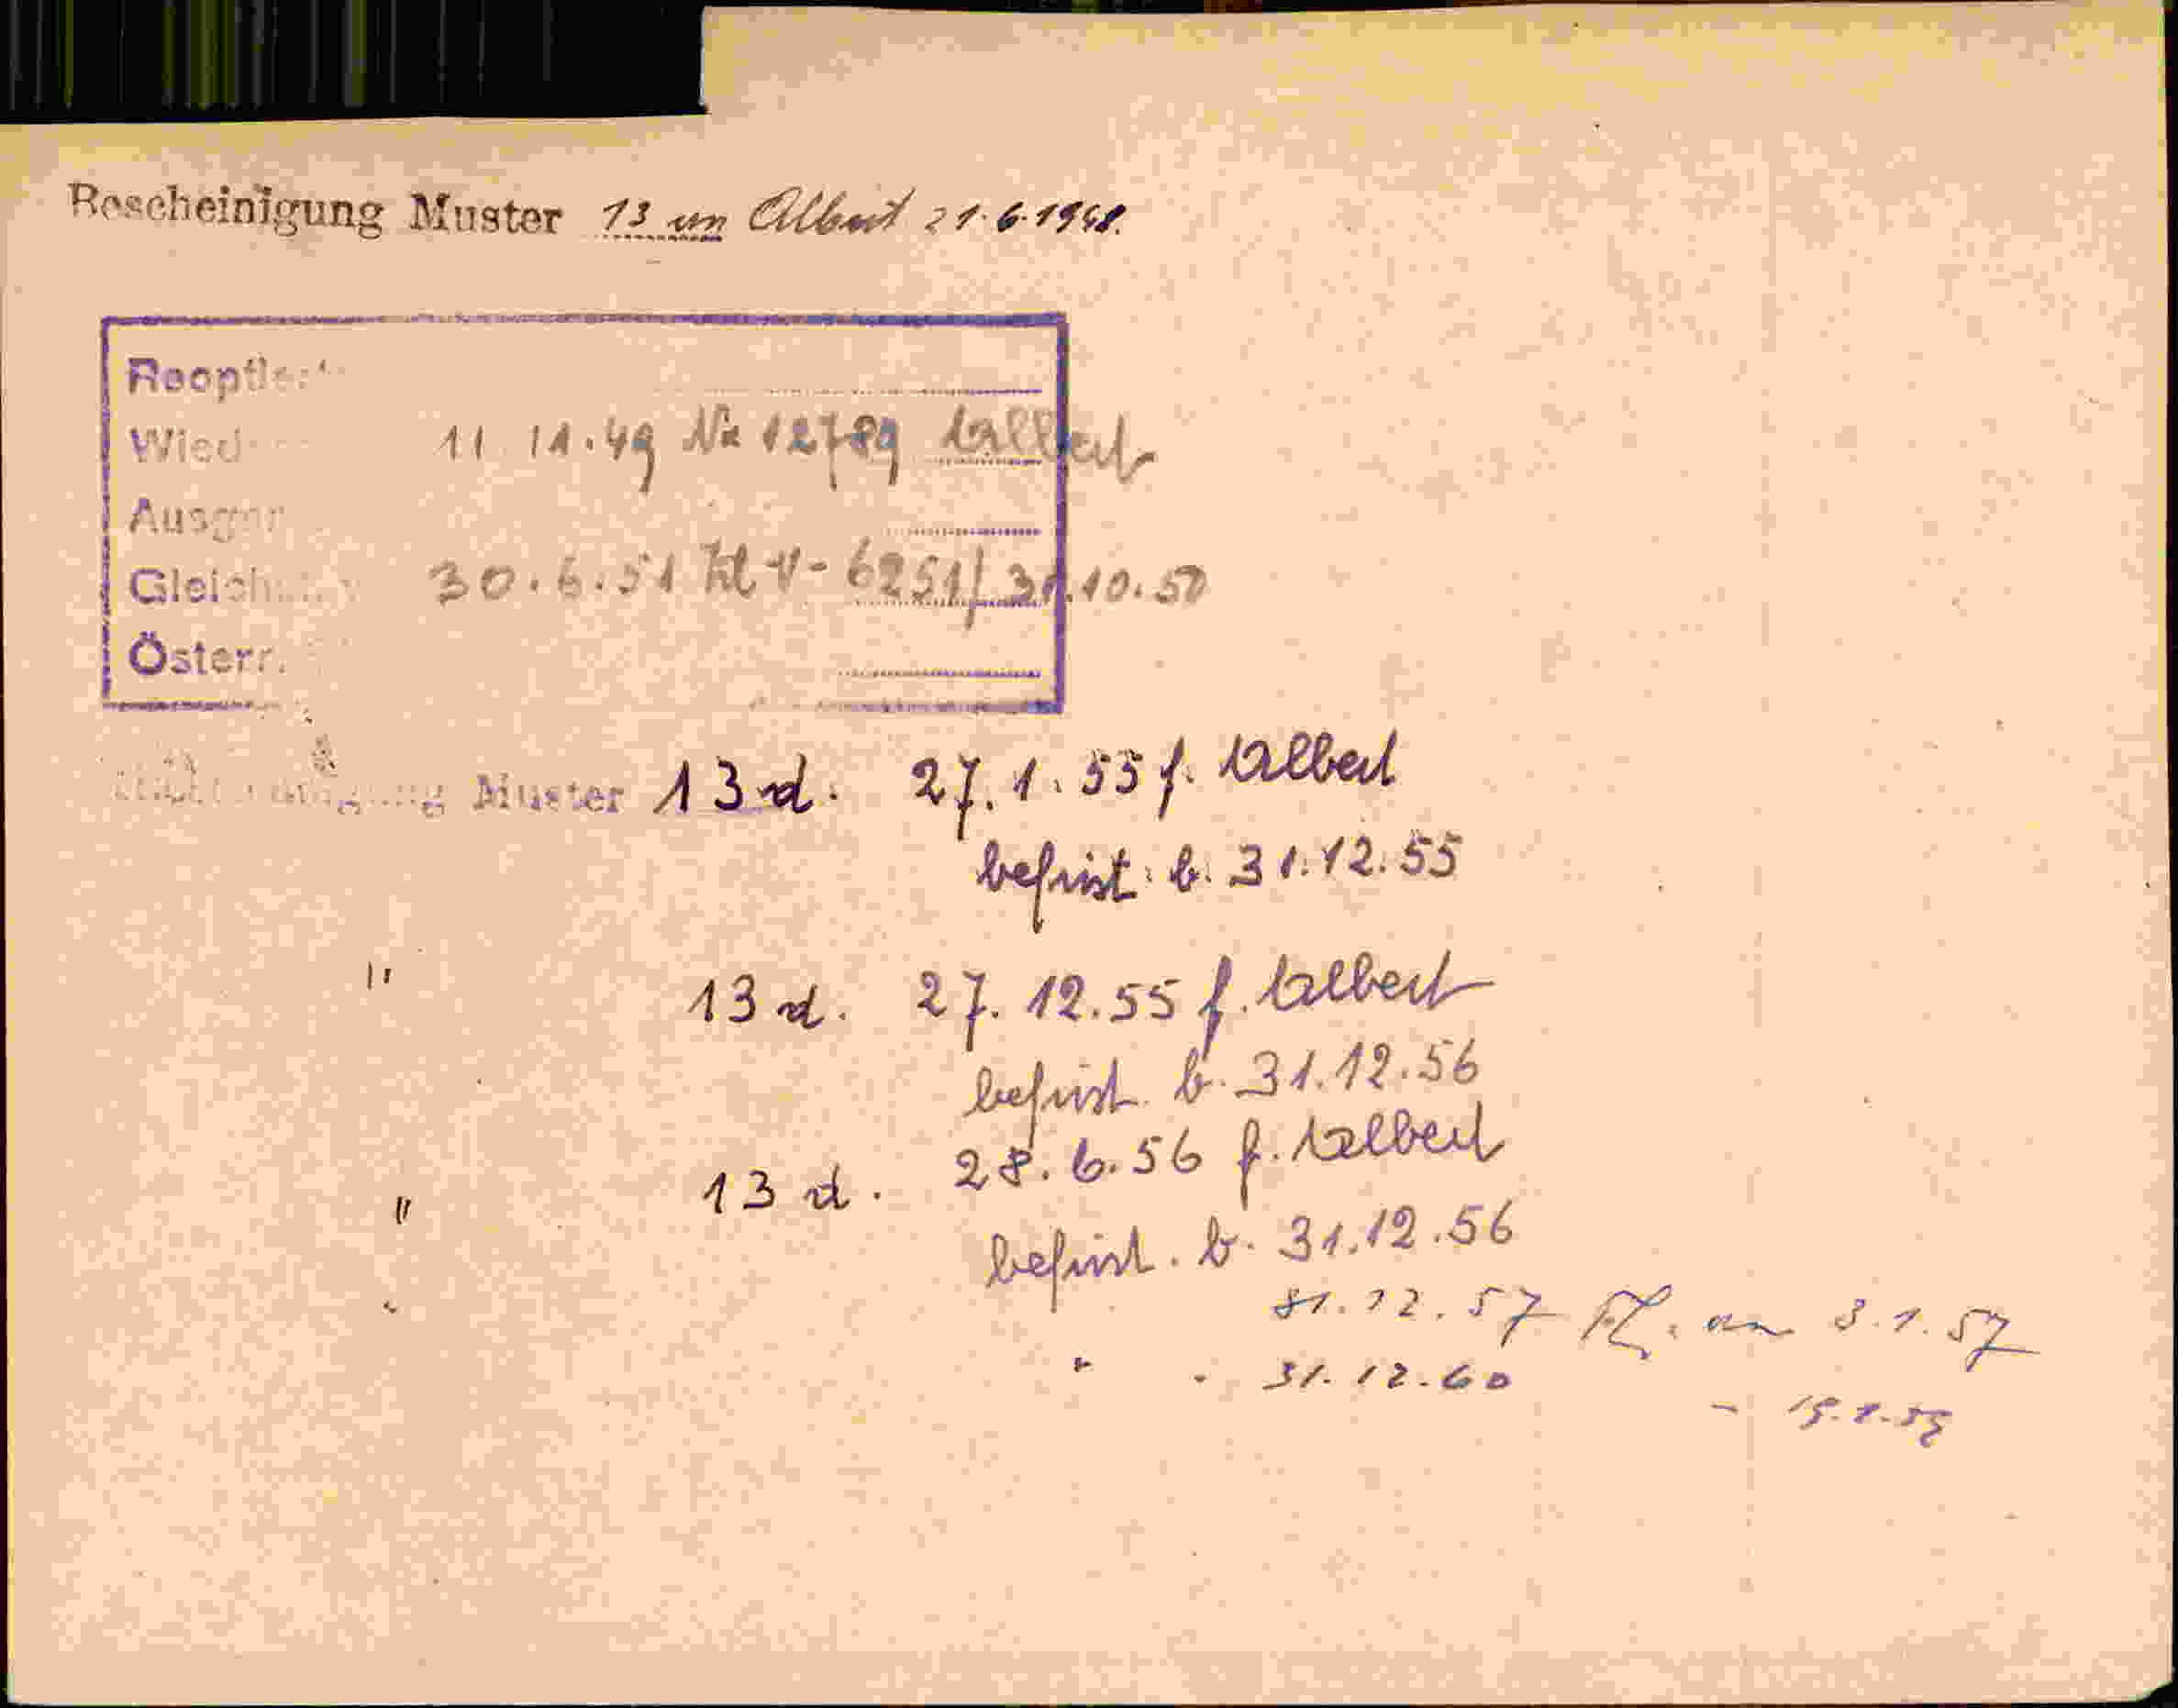 Bescheinigung Muster 13 an Albert 21.6.1948.
Reoptier
Wied 11.11.49 Nr 12789 Albert
Ausge
Gleich 30.6.51 Zl-V-6251/31.10.50
Österr.
Muster 13 d. 27.1.55 f. Albert
befrist. b. 31.12.55
" 13 d. 27.12.55 f. Albert
befrist. b. 31.12.56
" 13 d. 28.6.56 f. Albert
befrist. b. 31.12.56
" 31.12.57 an 3.1.57
" " 31.12.60 " 15.1.59